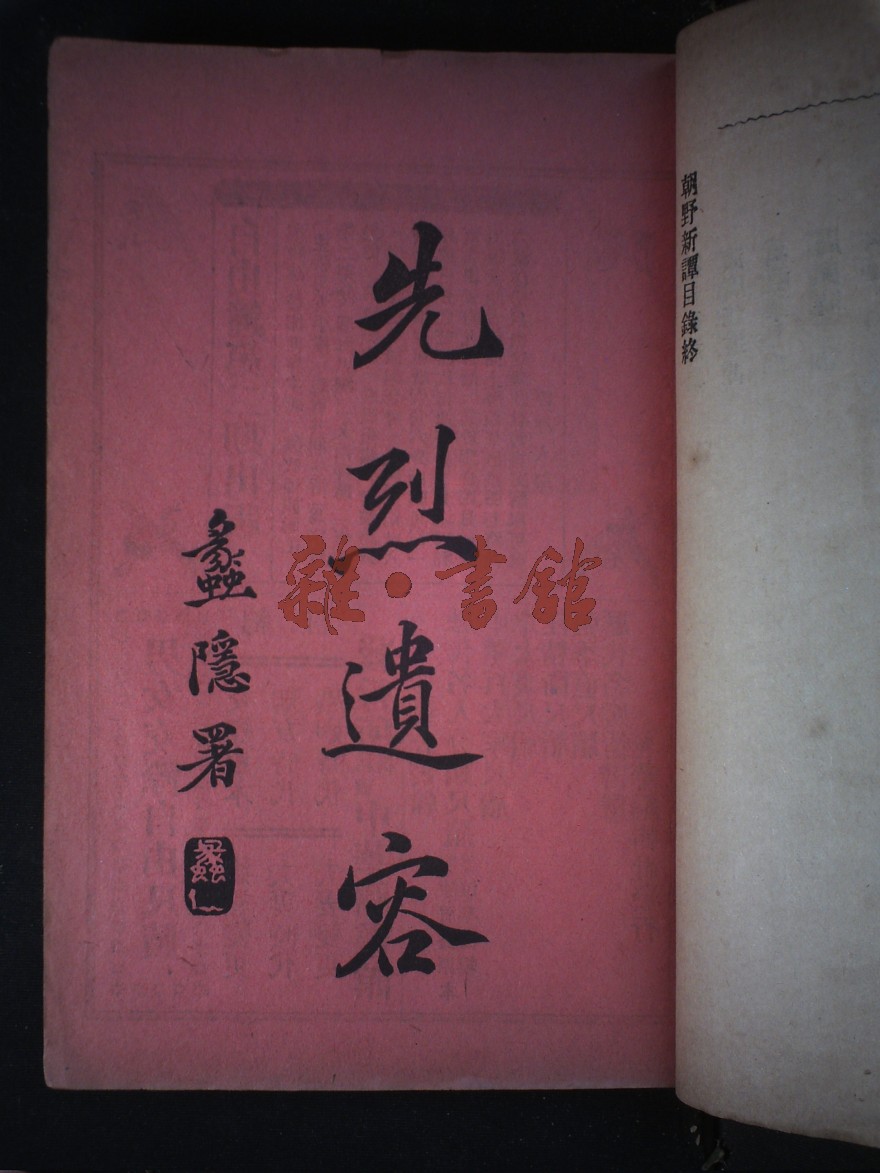 朝野新譚目錄終
先烈遺容
蠡隱署
雜·書館